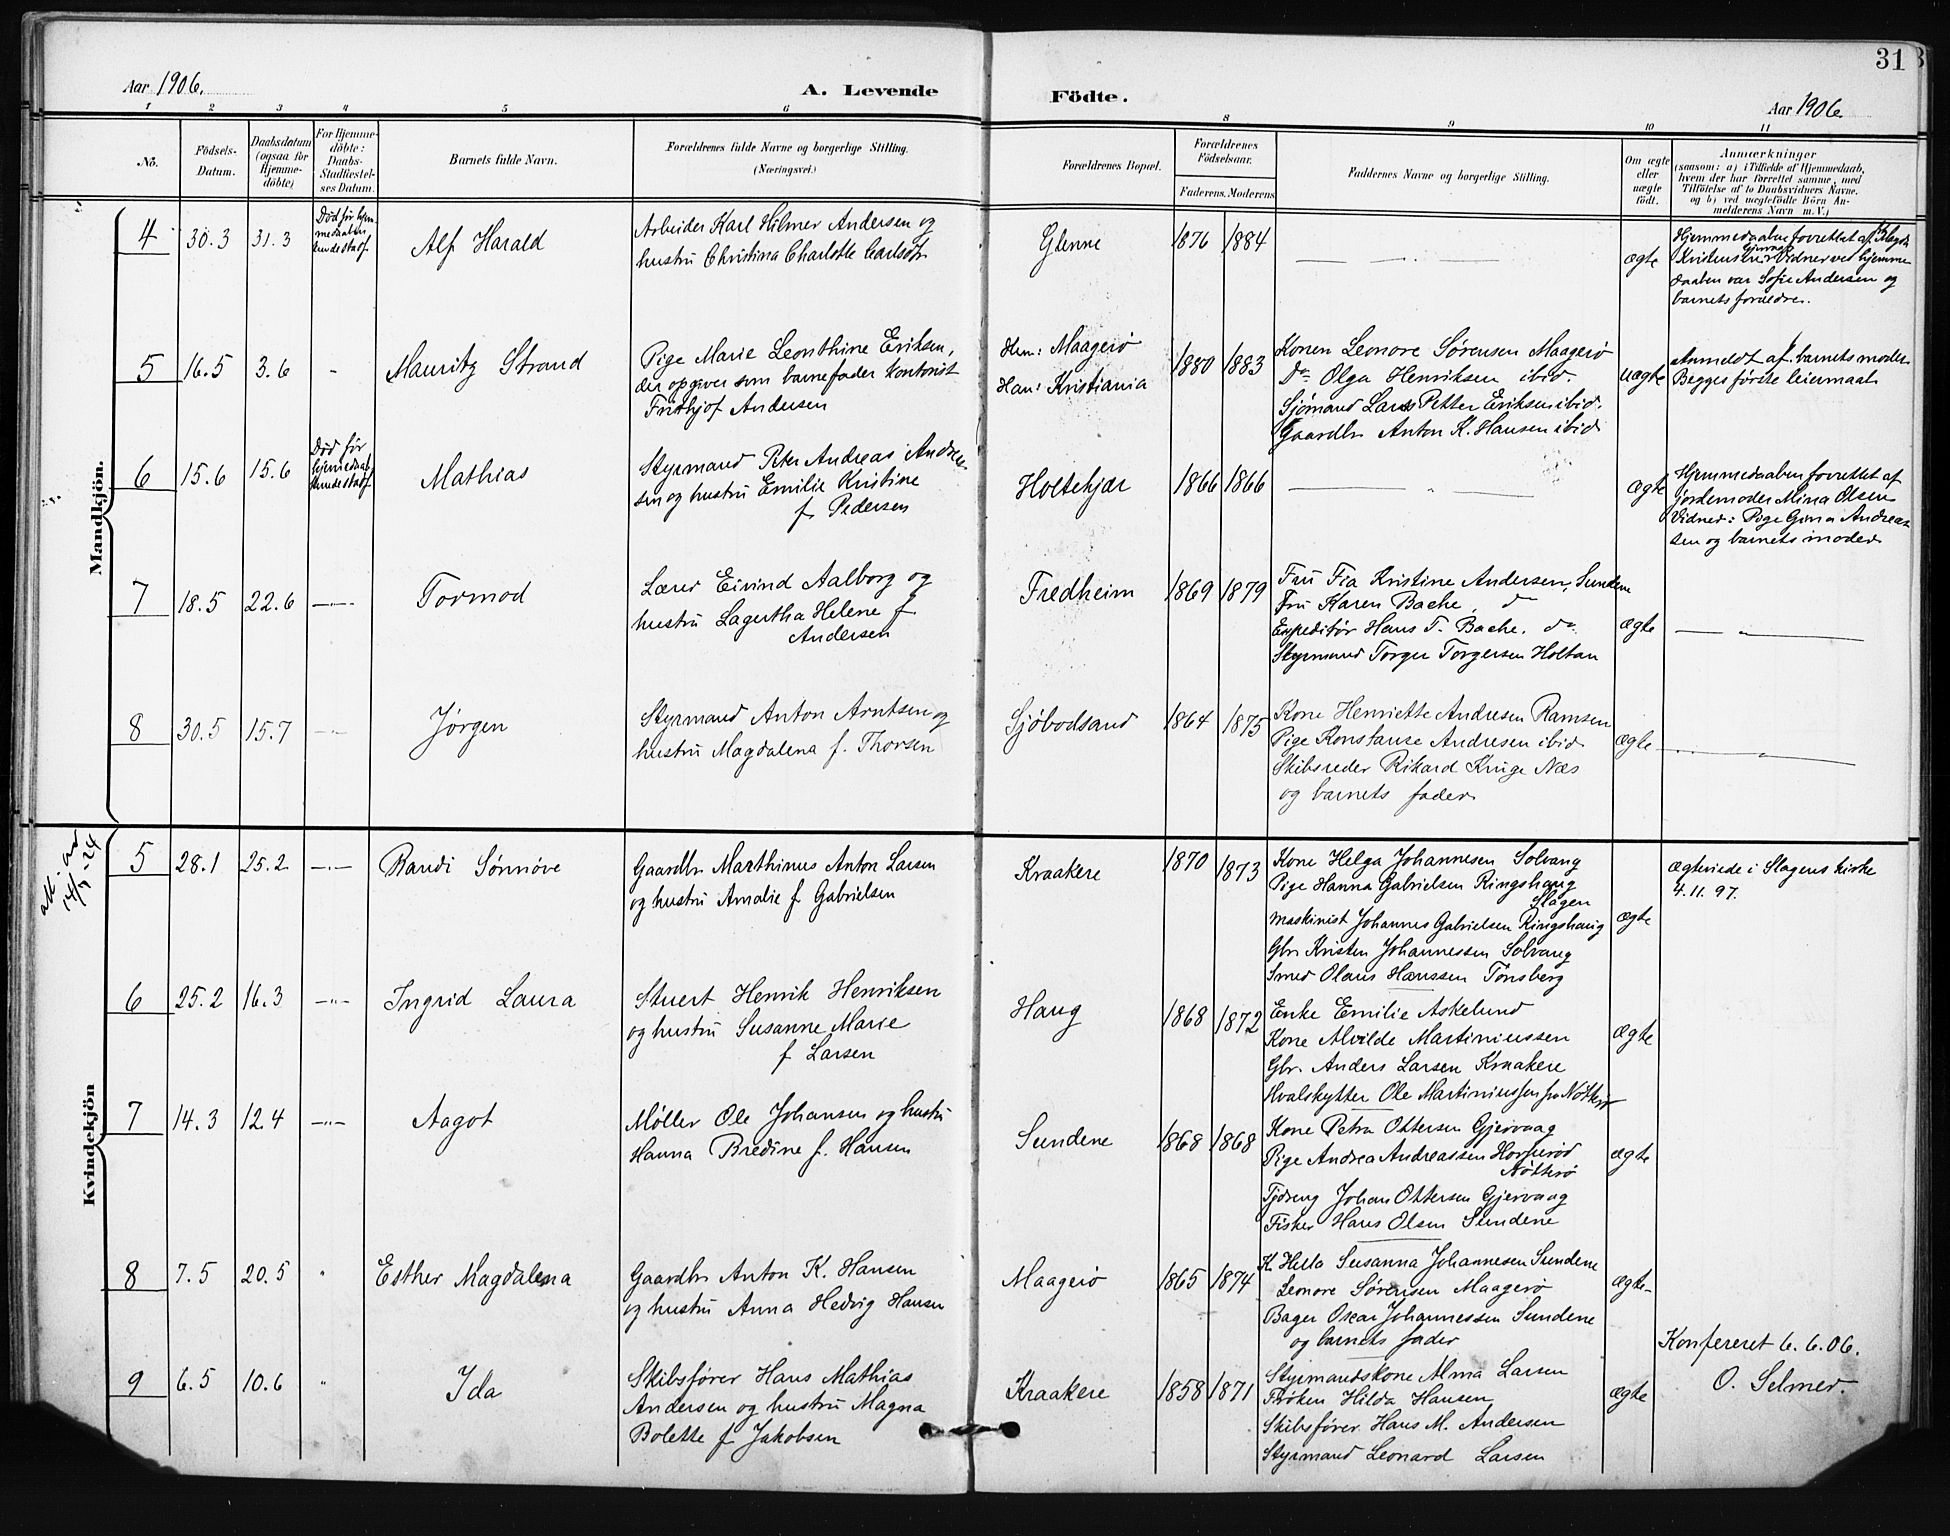 31
Aar 1906.
A. Levende
Födte.
Aar 1906.
1 2 3 4 5 6 8 9 10 11
No.
Födsels-Datum.
Daabsdatum (ogsaa for Hjemme-döbte)
For Hjemme-döbte: Daabs-Stadfæstel-ses Datum.
Barnets fulde Navn.
Forældrenes fulde Navne og borgerlige Stilling.
(Næringsvei.)
Forældrenes Bopæl.
Forældrenes Födselsaar.
Faderens. Moderens.
Faddernes Navne og borgerlige Stilling.
Om ægte eller uægte födt.
Anmærkninger
(saasom: a) i Tilfælde af Hjemmedaab,
hvem der har forrettet samme, med
Tilföielse af to Daabsvidners Navne.
og b) ved uægtefödte Börn An-
melderens Navn m. V.)
Mandkjön.
4 30.3 31.3
Død før hjem-
medaaben
kunde stadf.
Alf Harald
Arbeider Karl Hilmer Andersen og
hustru Christina Charlotte Carlsdtr
Glenne
1876 1884
ægte
Hjemmedaaben forrettet af
Kristensen Vidner ved hjemme
daaben var Sofie Andersen og
barnets forældre.
5 16.5 3.6 -
Mauritz Strand
Pige Marie Leonthine Eriksen,
der opgiver som barnefader kontorist
Frithjof Andersen
Hun: Maagerö
Han: Kristiania
1880 1883
Konen Leonore Sørensen Maagerö
Do Olga Henriksen ibid.
Sjömand Lars Petter Eriksen ibid.
Gaardbr Anton K. Hansen ibid
uægte
Anmeldt af barnets moder
Begges første leiermaal
6 15.6 15.6
Død før
hjemmedaab
kunde stadf.
Mathias
Styrmand Peter Andreas Andrea-
sen og hustru Emilie Kristine
f. Pedersen
Holtekjær
1866 1866
ægte
Hjemmedaaben forrettet af
jordemoder Mina Olsen
Vidner: Pige Gina Andreas
sen og barnets moder
7 18.5 22.6 —"—
Tormod
Lærer Eivind Aalborg og
hustru Lagertha Helene f
Andersen
Fredheim
1869 1879
Fru Fia Kristine Andersen, Sundene
Fru Karen Bache, do
Expeditör Hans T. Bache. do
Styrmand Torger Torgersen Holtan
ægte
— " —
8 30.5 15.7 —"—
Jørgen
Styrmand Anton Arntsen og
hustru Magdalena f. Thorsen
Sjöbodsand
1864 1875
Kone Henriette Andresen Ramsen
Pige Konstanse Andresen ibid
Skibsreder Rikard Kruge Næs
og barnets fader
ægte
— " —
Kvindekjön
att. av
14/ -24
5 28.1 25.2 —"—
Randi Sønnøve
Gaardbr Marthinus Anton Larsen
og hustru Amalie f Gabrielsen
Kraakere
1870 1873
Kone Helga Johannesen Solvang
Pige Hanna Gabrielsen Ringshaug
Slagen
Maskinist Johannes Gabrielsen Ringshaug
Gbr. Kristen Johannessen Solvang
Smed Olaus Hanssen Tønsberg
ægte
Ægteviede i Slagens kirke
4.11.97.
6 25.2 16.3 —"—
Ingrid Laura
Stuert Henrik Henriksen
og hustru Susanne Marie
f Larsen
Haug
1868 1872
Enke Emilie Askelund
Kone Alvilde Martiniussen
Gbr. Anders Larsen Kraakere
Hvalskytter Ole Martiniussen fra Nötterö
ægte
7 14.3 12.4 —"—
Aagot
Møller Ole Johansen og hustru
Hanna Bredine f. Hansen
Sundene
1868 1868
Kone Petra Ottersen Gjervaag
Pige Andrea Andreassen
Nötterö
Johan Ottersen Gjervaag
Fisker Hans Olsen Sundene
ægte
8 7.5 20.5 "
Esther Magdalena
Gaardbr Anton K. Hansen
og hustru Anna Hedvig Hansen
Maagerö
1865 1874
K. Susanna Johannesen Sundene
Leonore Sørensen Maagerö
Bager Oscar Johannessen Sundene
og barnets fader
ægte
9 6.5 10.6 "
Ida
Skibsfører Hans Mathias
Andersen og hustru Magna
Bolette f Jakobsen
Kraakere
1858 1871
Styrmandskone Alma Larsen
Frøken Hilda Hansen
Skibsfører Hans M. Andersen
Styrmand Leonard Larsen
ægte
Konfereret 6.6.06.
O. Selmer.